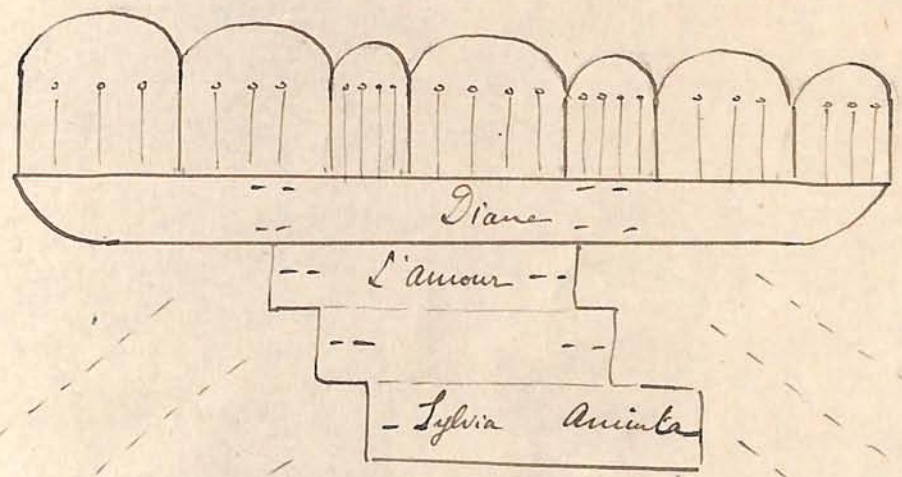 Diane
L'amour
Sylvia Aminta